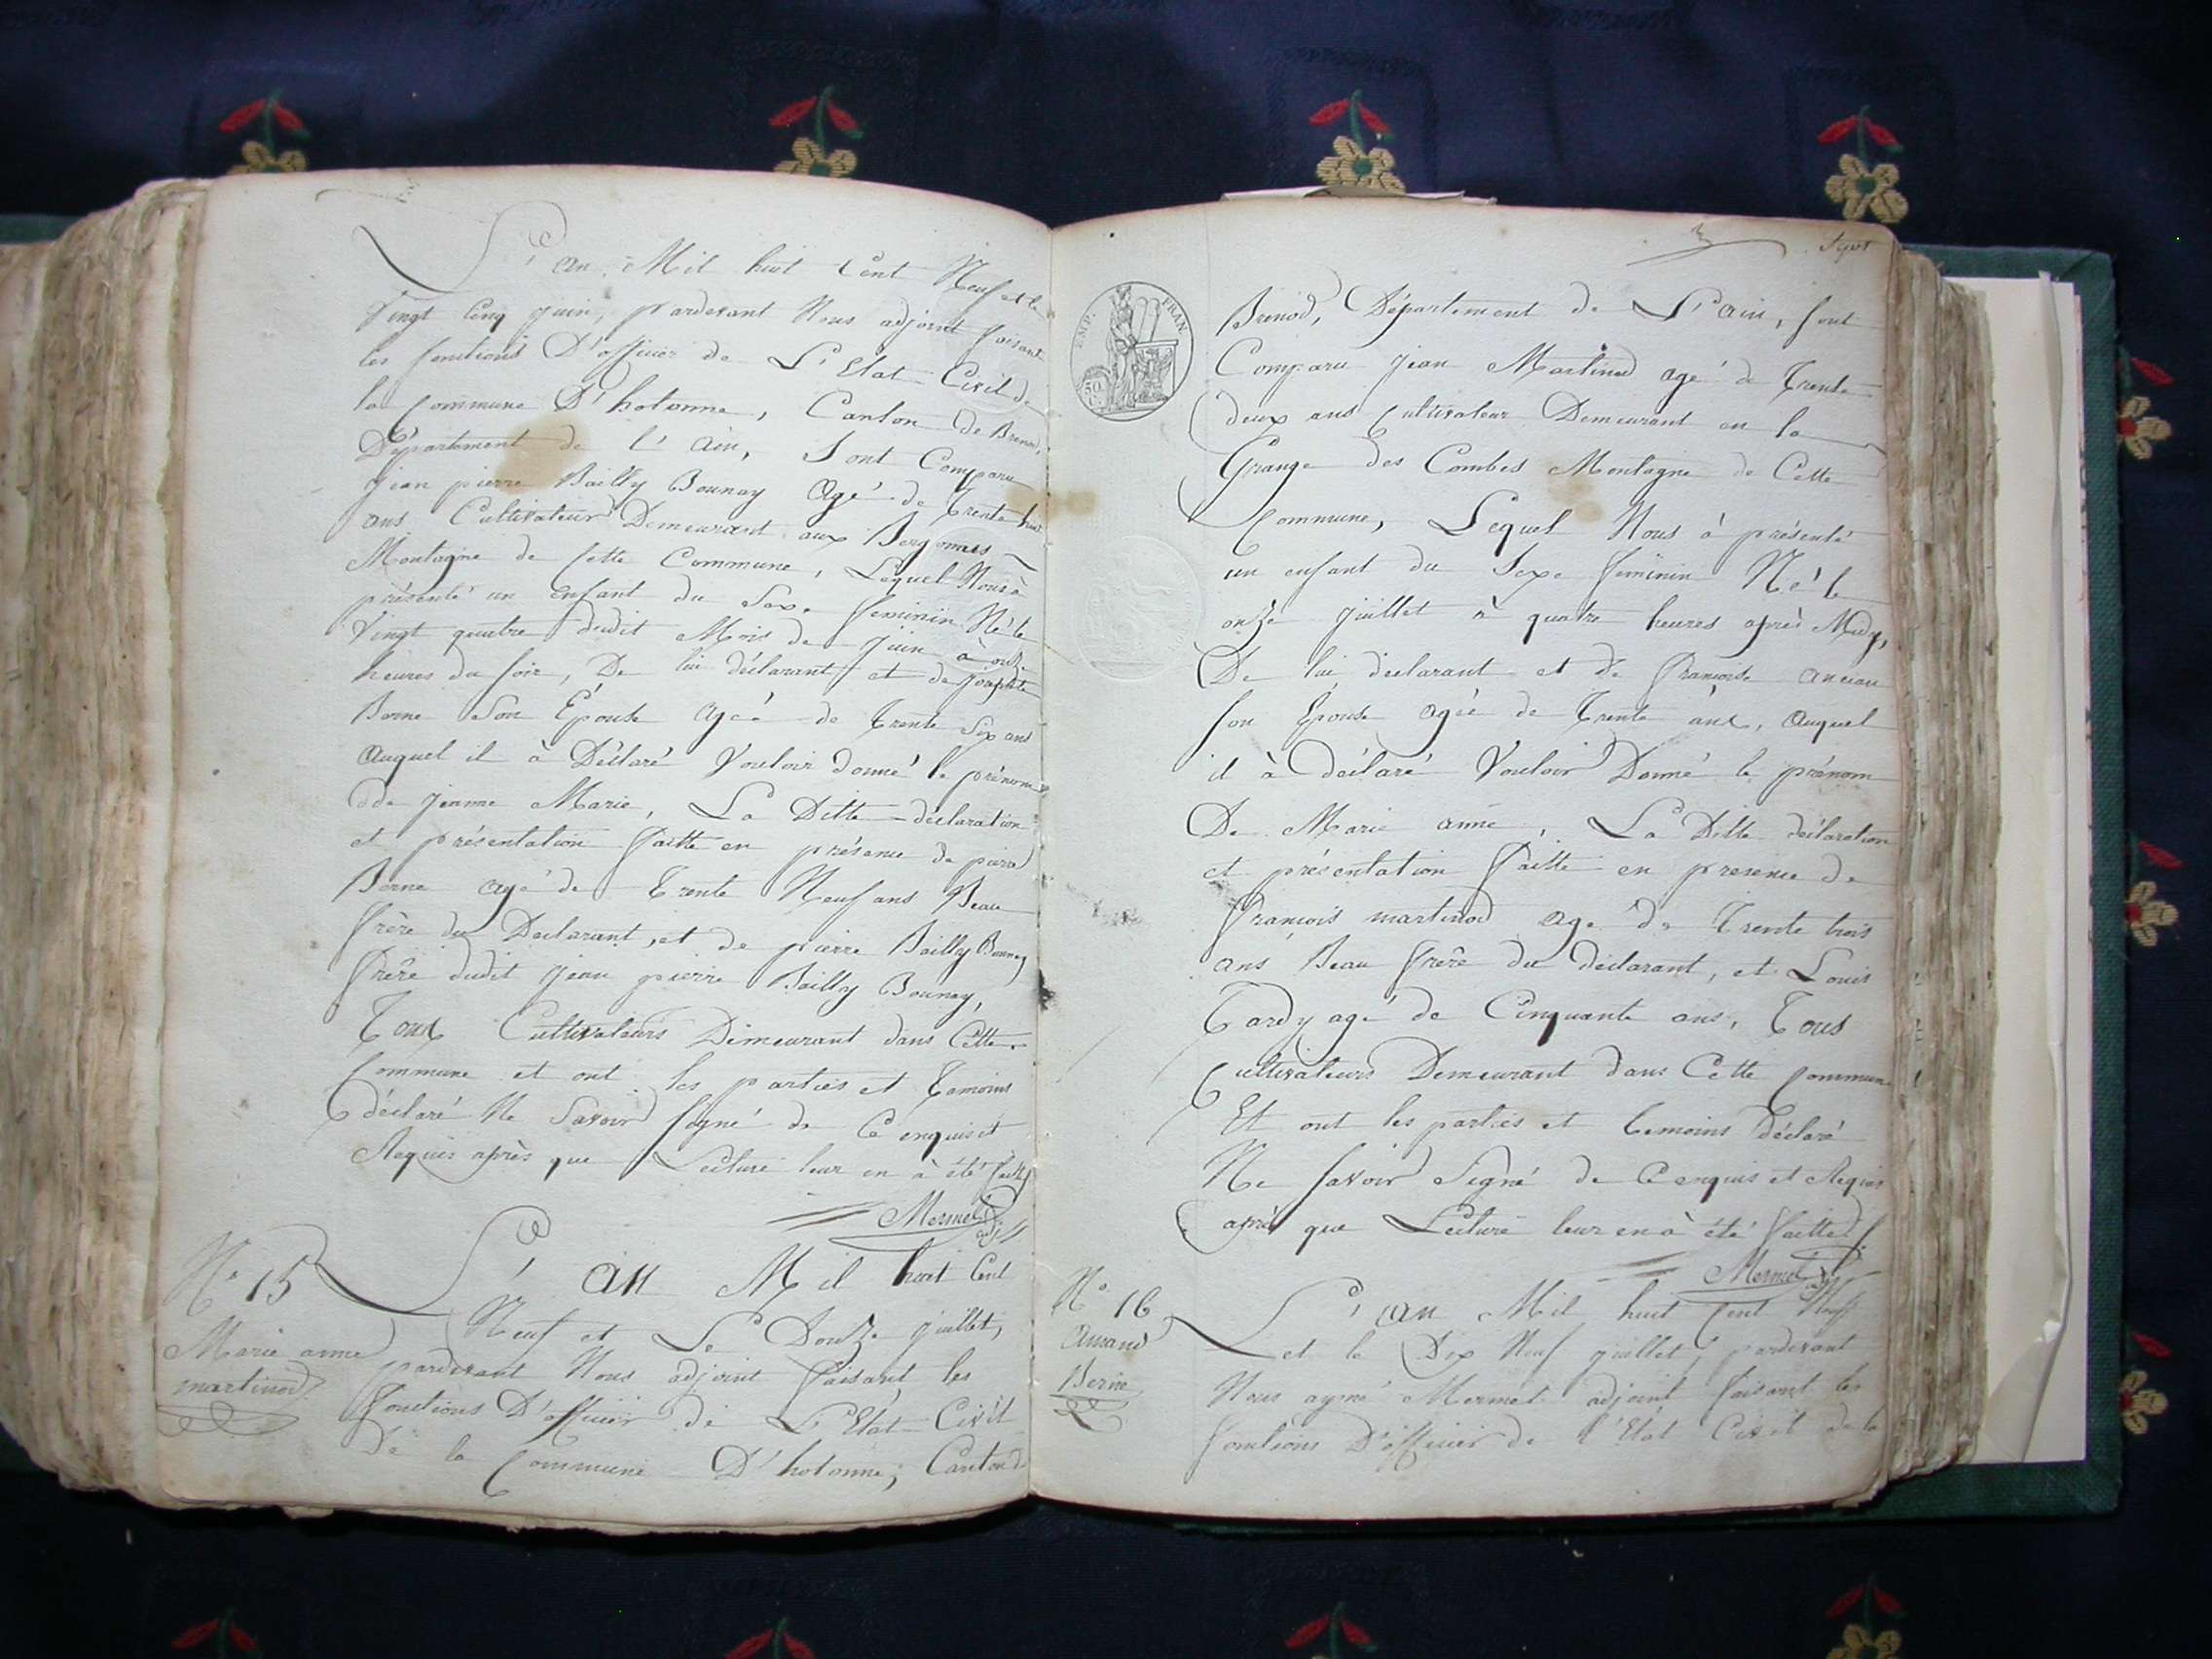 L'an Mil huit Cent Neuf et le
Vingt Cinq juin, pardevant Nous adjoint faisant
les fonctions D'officier de L'Etat Civil de
la Commune D'hotonne, Canton de Brenod,
Département de l'Ain, Sont Comparu
jean pierre Bailly Bounay Agé de Trente huit
ans Cultivateur Demeurant aux Bergonnes
Montagne de Cette Commune, Lequel Nous à
présenté un enfant du Sexe feminin Né le
Vingt quatre dudit Mois de juin à onze
heures du soir, De lui déclarant et de josephte
Borne Son Épouse Agée de Trente Six ans
Auquel il à Déclaré Vouloir donné le prénom
de jeanne Marie, La Ditte déclaration
et présentation faitte en présence de pierre
Berne agé de Trente Neuf ans Beau
frère du Declarant, et de pierre Bailly Bounay
frère dudit jean pierre Bailly Bounay,
Tous Cultivateurs Demeurant dans Cette
Commune et ont les parties et Temoins
déclaré Ne Savoir Signé de Ce enquis et
Requis après que Lecture leur en à été faitte
Mermet
N° 15
Marie anne
martinod
L'an Mil huit Cent
Neuf et Le Douze juillet,
pardevant Nous adjoint faisant les
fonctions D'officier de L'Etat Civil
de la Commune D'hotonne, Canton de
EMP. FRAN.
Brénod, Département de L'Ain, sont
Comparu jean Martinod agé de Trente
deux ans Cultivateur Demeurant en la
Grange des Combes Montagne de Cette
Commune, Lequel Nous à présenté
un enfant du Sexe feminin Né le
onze juillet à quatre heures après Midy,
De lui déclarant et de françoise anciau
son Épouse agée de Trente ans, auquel
il à déclaré Vouloir Donné le prénom
De Marie anne, La Ditte déclaration
et présentation faitte en presence de
françois martinod age de Trente trois
ans Beau frère du déclarant, et Louis
Tardy agé de Cinquante ans, Tous
Cultivateurs Demeurant dans Cette Commune
Et ont les parties et temoins déclaré
Ne savoir Signé de Ce enquis et Requis
après que Lecture leur en à été faitte
Mermet
N° 16
Amand
Berne
L'an Mil huit Cent Neuf
et le Dix Neuf juillet, pardevant
Nous aymé Mermet adjoint faisant les
fonctions D'officier de l'Etat Civil de la